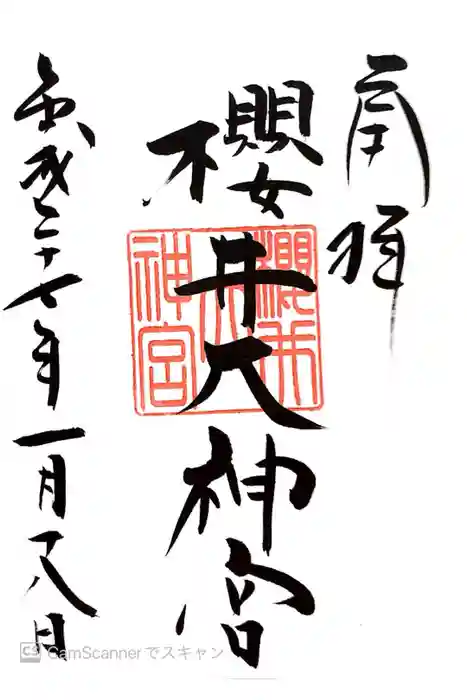 奉拝
櫻井大神宮
櫻井大神宮
平成二十七年一月十八日
CS CamScannerでスキャン